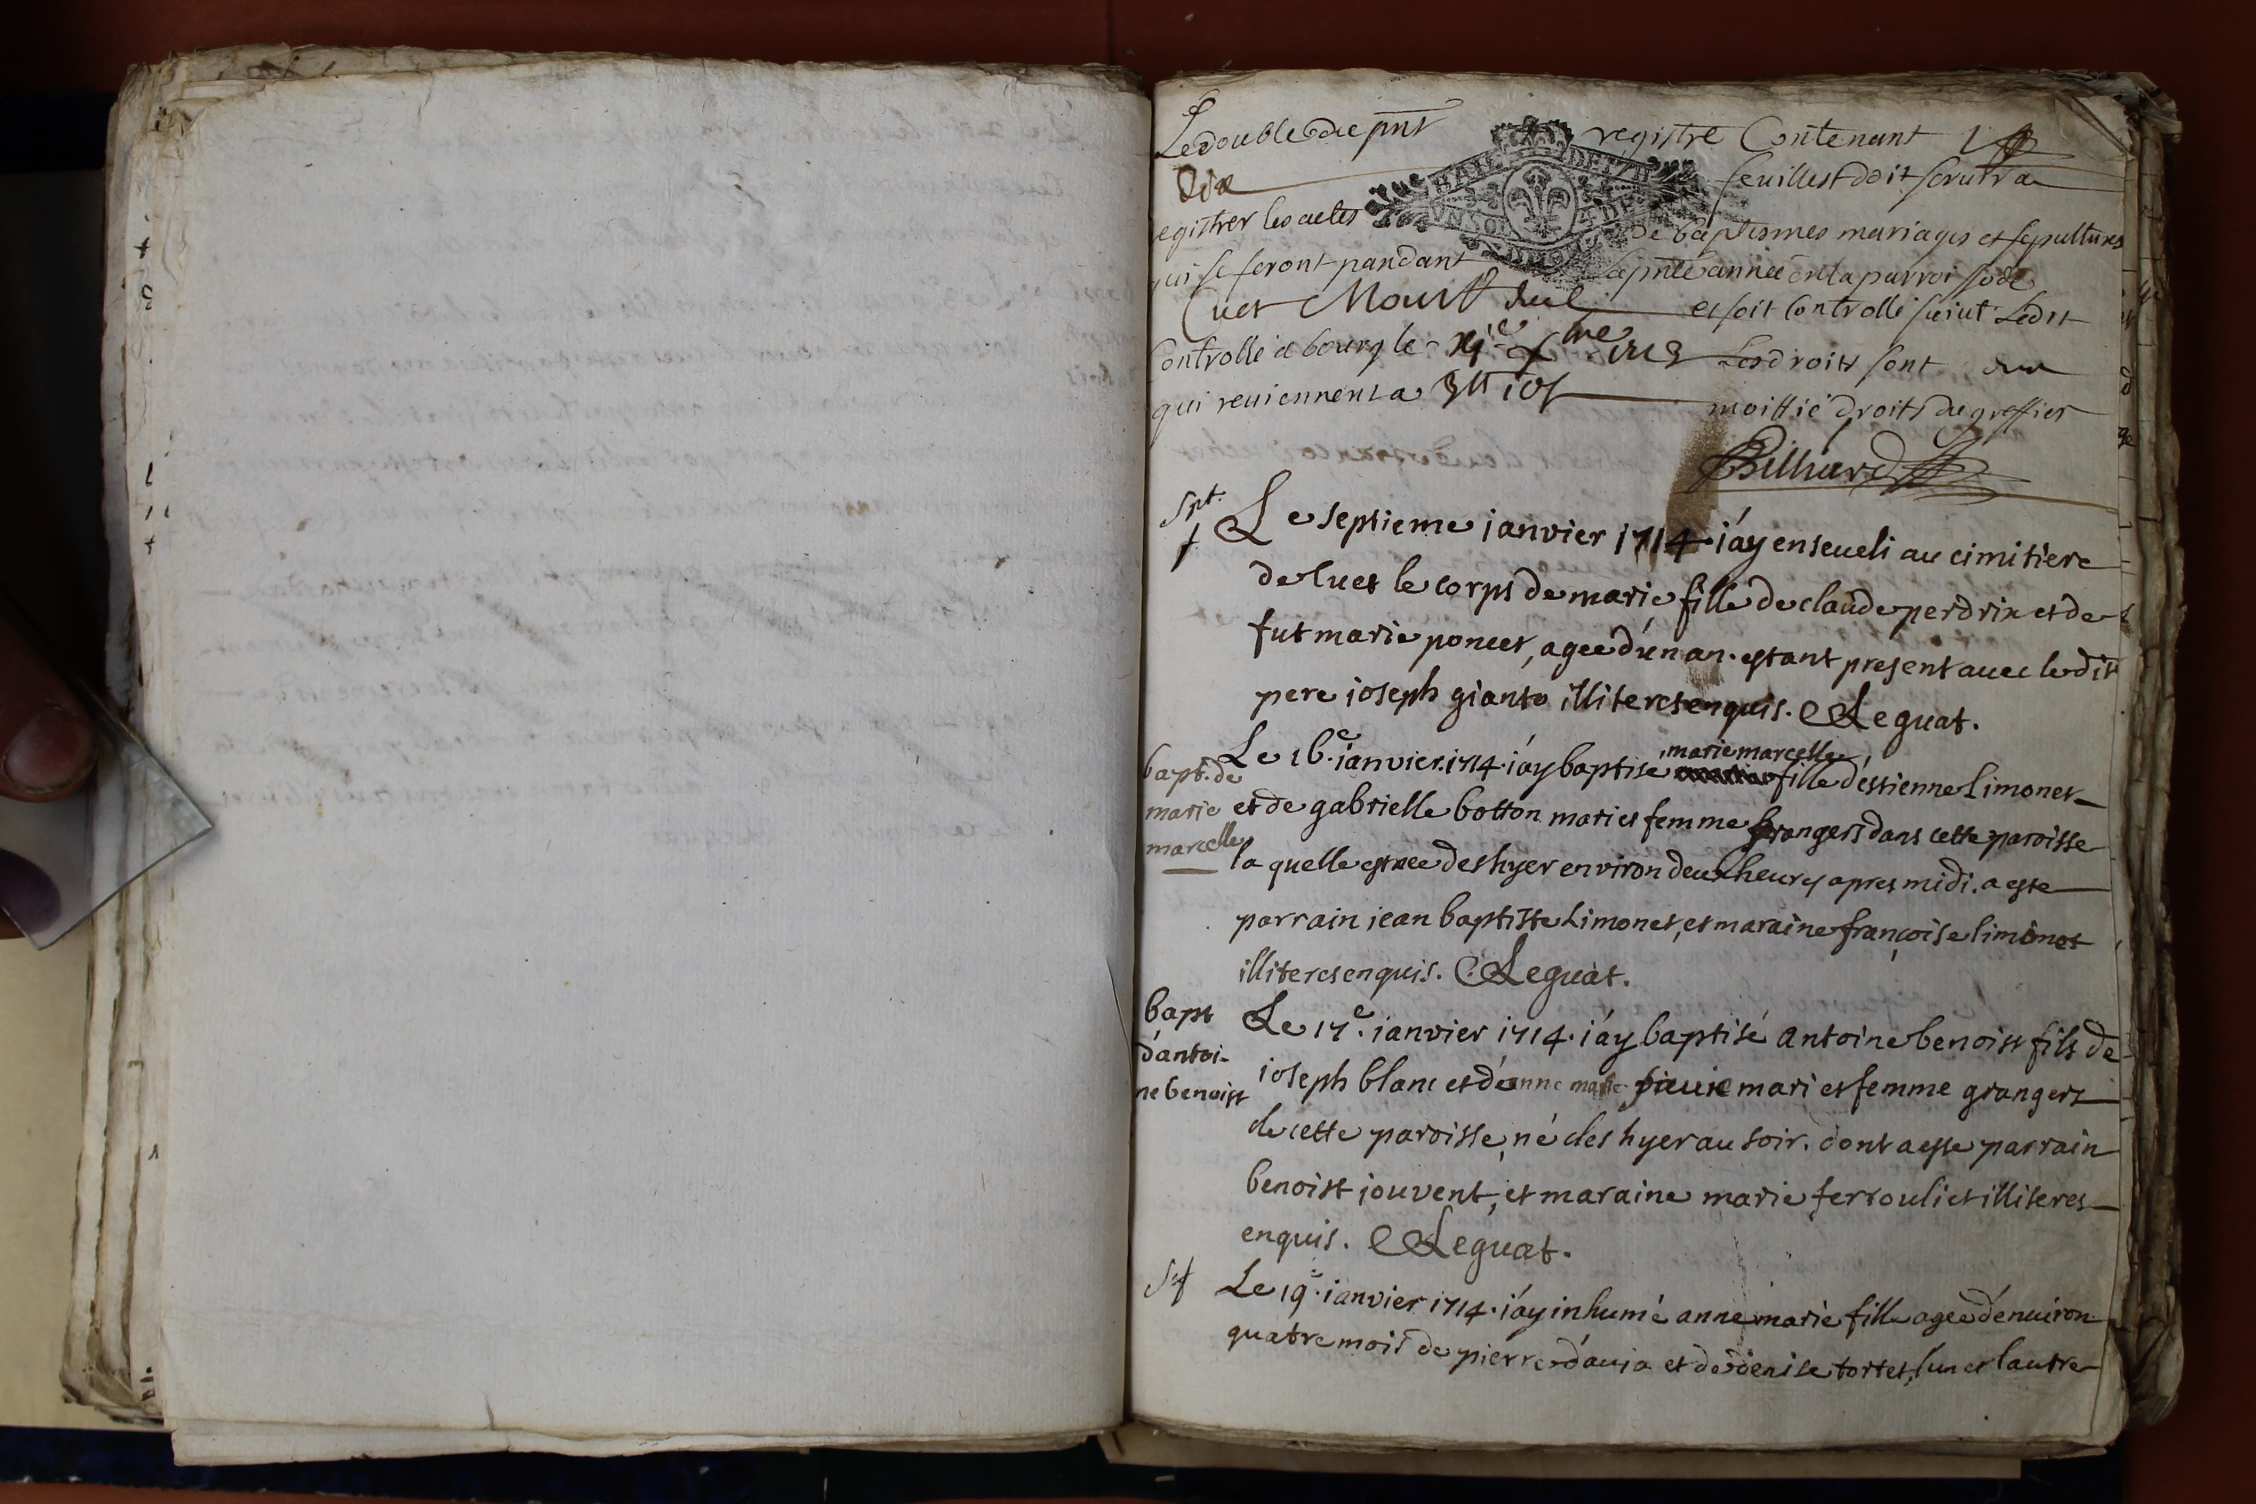 Le double du pnt registre Contenant
Dix feuillest doit servir a
egistrer les actes de baptismes mariages et sepultures
qui se feront pandant la pnte année en la parroisse de
Cuet et soit Controllé suivt Ledit
Controllé a bourg le Les droits sont
qui reviennent a 3tt 10s moittié droits du greffier
Billiard
Spt.
Le septieme janvier 1714. i'ay enseveli au cimitiere
de Cuet le corps de marie fille de claude perdrix et de
fut marie poncet, agee d'un an. estant present avec le dit
pere ioseph gianto illiteres enquis. Leguat.
bapt. de
marie
marcelle
marie marcelle
Le 16.e ianvier. 1714. i'ay baptise fille d'estienne Limonet
et de gabrielle botton mari et femme grangers dans cette paroisse
la quelle est nee des hyer environ deux heures apres midi. a este
parrain jean baptiste Limonet, et maraine françoise limonet
illiteres enquis. Leguat.
bapt
d'antoi-
ne benoist
Le 17.e ianvier 1714. i'ay baptisé antoine benoist fils de
ioseph blanc et d'anne marie mari et femme grangers
de cette paroisse, né des hyer au soir. dont a este parrain
benoist jouvent, et maraine marie ferrouliet illiteres
enquis. Leguat.
Le 19.e ianvier 1714. i'ay inhumé anne marie fille agee d'environ
quatre mois de pierre d'auja et de denise tortet, l'un et l'autre